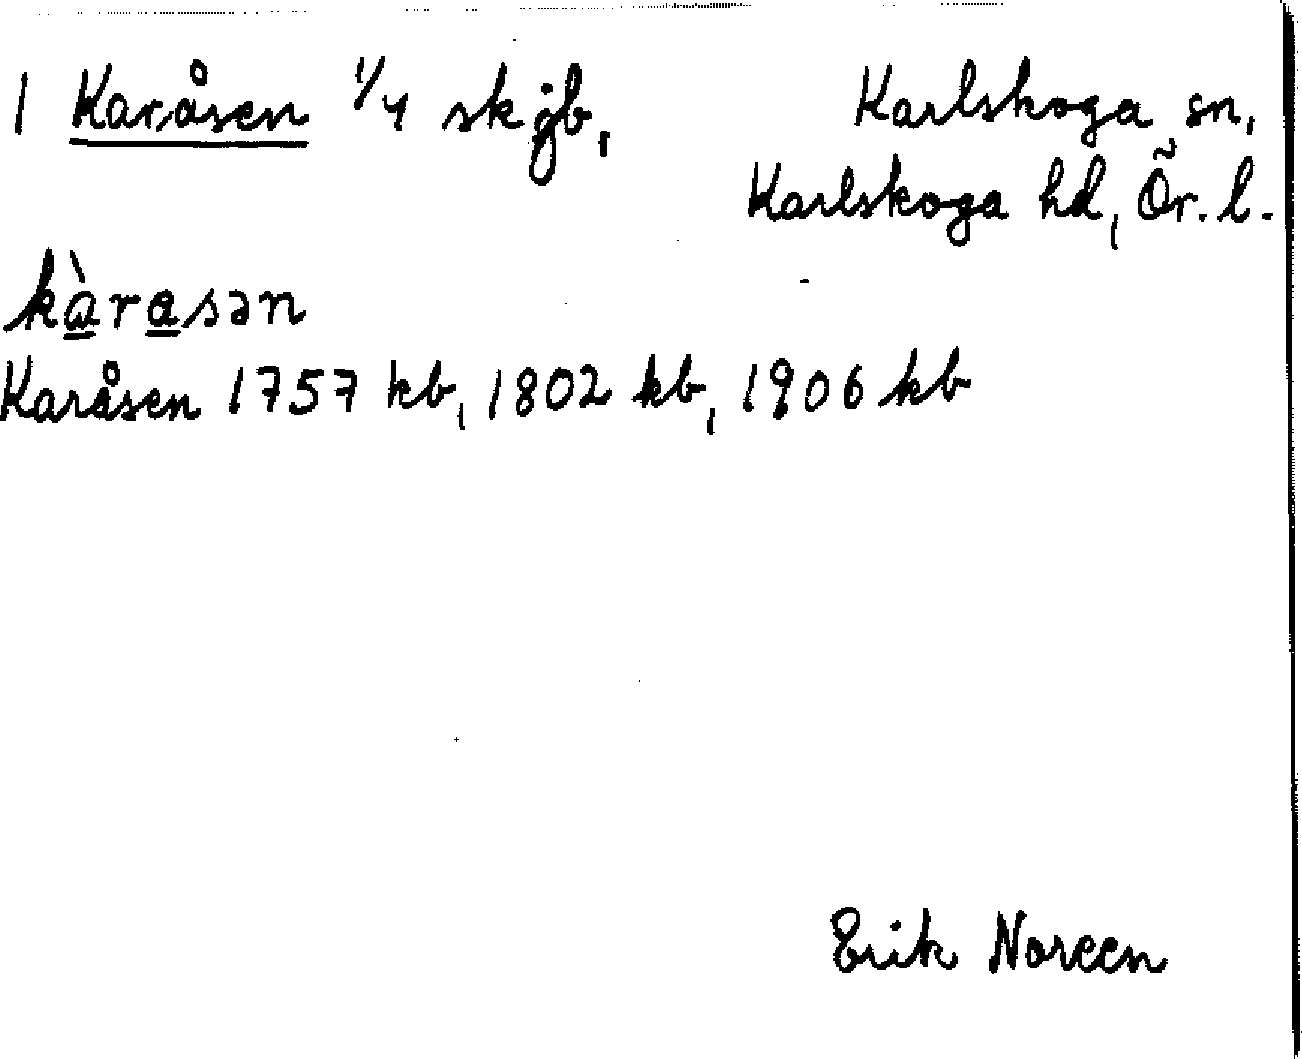 1 Karåsen 1/4 skjb,
Karlskoga sn,
Karlskoga hd, Ör. l.
kàrasən
Karåsen 1757 kb, 1802 kb, 1906 kb
Erik Noreen